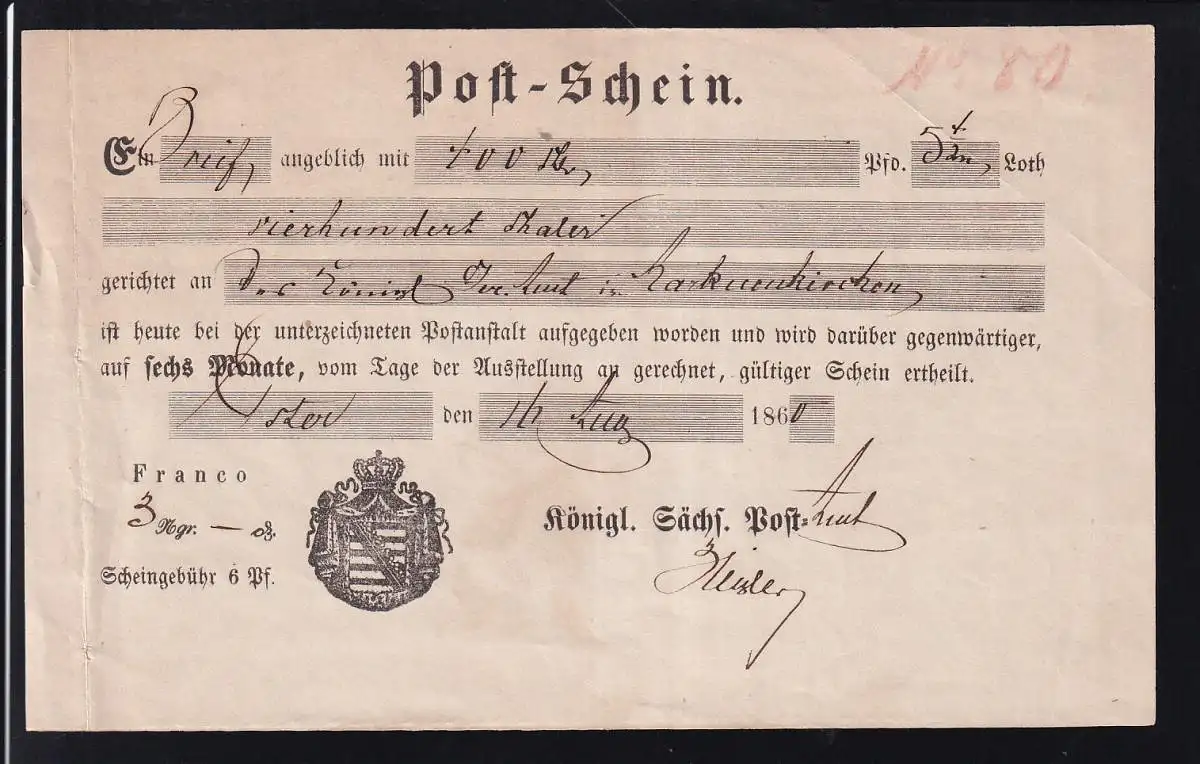 No. 80
Post-Schein.
Ein Brief, angeblich mit 400 Th., Pfd. 5 Loth
vierhundert Thaler
gerichtet an das Königl. Amt in Markneukirchen,
ist heute bei der unterzeichneten Postanstalt aufgegeben worden und wird darüber gegenwärtiger,
auf sechs Monate, vom Tage der Ausstellung an gerechnet, gültiger Schein ertheilt.
den 16 Aug 1860
Franco
3 Ngr. — Pf.
Königl. Sächs. Post-Amt
Scheingebühr 6 Pf.